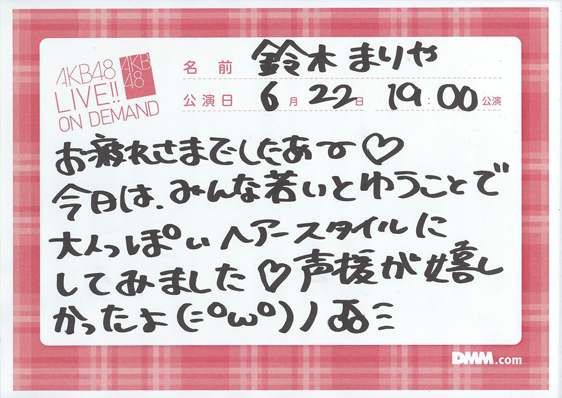 AKB48
LIVE!!
ON DEMAND
AKB
48
名前 鈴木まりや
公演日 6月22日 19:00公演
お疲れさまでしたあー♡
今日は、みんな若いとゆうことで
大人っぽいヘアースタイルに
してみました♡声援が嬉し
かったよ(=゚ω゚)ノ
DMM.com